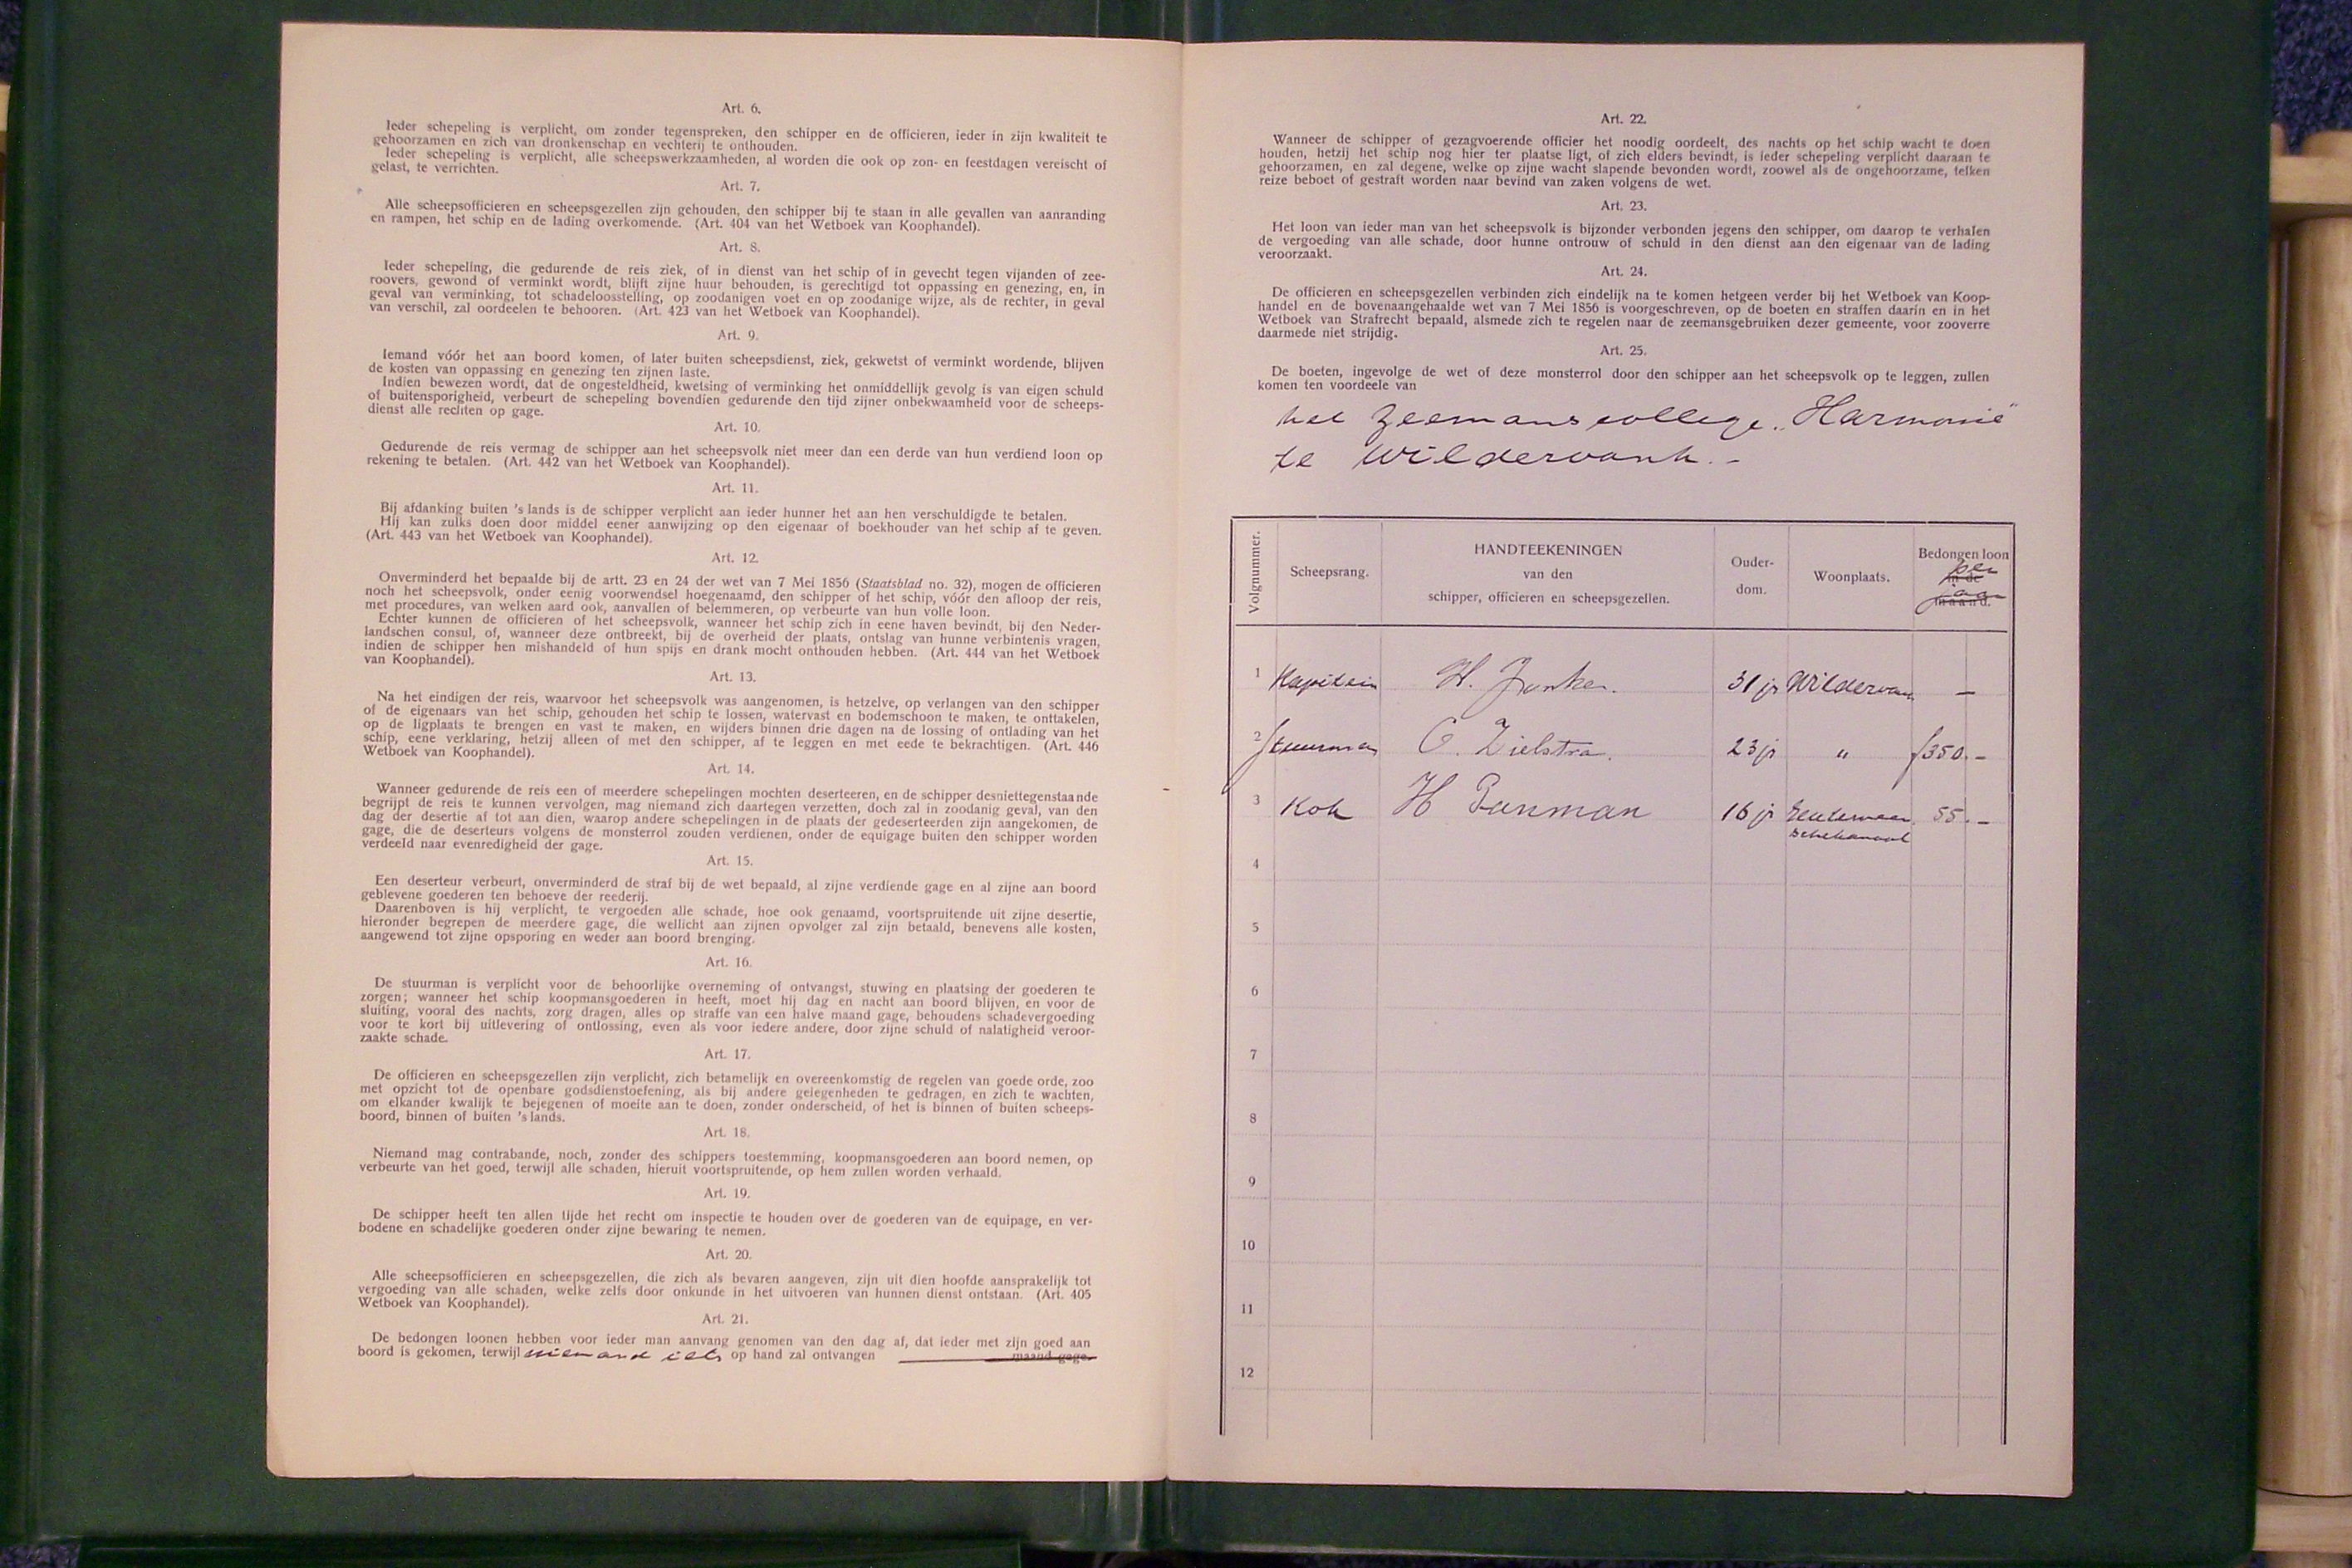 Art. 6.
Ieder schepeling is verplicht, om zonder tegenspreken, den schipper en de officieren, ieder in zijn kwaliteit te
gehoorzamen en zich van dronkenschap en vechterij te onthouden.
Ieder schepeling is verplicht, alle scheepswerkzaamheden, al worden die ook op zon- en feestdagen vereischt of
gelast, te verrichten.
Art. 7.
Alle scheepsofficieren en scheepsgezellen zijn gehouden, den schipper bij te staan in alle gevallen van aanranding
en rampen, het schip en de lading overkomende. (Art. 404 van het Wetboek van Koophandel).
Art. 8.
Ieder schepeling, die gedurende de reis ziek, of in dienst van het schip of in gevecht tegen vijanden of zee-
roovers, gewond of verminkt wordt, blijft zijne huur behouden, is gerechtigd tot oppassing en genezing, en, in
geval van verminking, tot schadeloosstelling, op zoodanigen voet en op zoodanige wijze, als de rechter, in geval
van verschil, zal oordeelen te behooren. (Art. 423 van het Wetboek van Koophandel).
Art. 9.
Iemand vóór het aan boord komen, of later buiten scheepsdienst, ziek, gekwetst of verminkt wordende, blijven
de kosten van oppassing en genezing ten zijnen laste.
Indien bewezen wordt, dat de ongesteldheid, kwetsing of verminking het onmiddellijk gevolg is van eigen schuld
of buitensporigheid, verbeurt de schepeling bovendien gedurende den tijd zijner onbekwaamheid voor de scheeps-
dienst alle rechten op gage.
Art. 10.
Gedurende de reis vermag de schipper aan het scheepsvolk niet meer dan een derde van hun verdiend loon op
rekening te betalen. (Art. 442 van het Wetboek van Koophandel).
Art. 11.
Bij afdanking buiten 's lands is de schipper verplicht aan ieder hunner het aan hen verschuldigde te betalen.
Hij kan zulks doen door middel eener aanwijzing op den eigenaar of boekhouder van het schip af te geven.
(Art. 443 van het Wetboek van Koophandel).
Art. 12.
Onverminderd het bepaalde bij de artt. 23 en 24 der wet van 7 Mei 1856 (Staatsblad no. 32), mogen de officieren
noch het scheepsvolk, onder eenig voorwendsel hoegenaamd, den schipper of het schip, vóór den afloop der reis,
met procedures, van welken aard ook, aanvallen of belemmeren, op verbeurte van hun volle loon.
Echter kunnen de officieren of het scheepsvolk, wanneer het schip zich in eene haven bevindt, bij den Neder-
landschen consul, of, wanneer deze ontbreekt, bij de overheid der plaats, ontslag van hunne verbintenis vragen,
indien de schipper hen mishandeld of hun spijs en drank mocht onthouden hebben. (Art. 444 van het Wetboek
van Koophandel).
Art. 13.
Na het eindigen der reis, waarvoor het scheepsvolk was aangenomen, is hetzelve, op verlangen van den schipper
of de eigenaars van het schip, gehouden het schip te lossen, watervast en bodemschoon te maken, te onttakelen,
op de ligplaats te brengen en vast te maken, en wijders binnen drie dagen na de lossing of ontlading van het
schip, eene verklaring, hetzij alleen of met den schipper, af te leggen en met eede te bekrachtigen. (Art. 446
Wetboek van Koophandel).
Art. 14.
Wanneer gedurende de reis een of meerdere schepelingen mochten deserteeren, en de schipper desniettegenstaande
begrijpt de reis te kunnen vervolgen, mag niemand zich daartegen verzetten, doch zal in zoodanig geval, van den
dag der desertie af tot aan dien, waarop andere schepelingen in de plaats der gedeserteerden zijn aangekomen, de
gage, die de deserteurs volgens de monsterrol zouden verdienen, onder de equigage buiten den schipper worden
verdeeld naar evenredigheid der gage.
Art. 15.
Een deserteur verbeurt, onverminderd de straf bij de wet bepaald, al zijne verdiende gage en al zijne aan boord
geblevene goederen ten behoeve der reederij.
Daarenboven is hij verplicht, te vergoeden alle schade, hoe ook genaamd, voortspruitende uit zijne desertie,
hieronder begrepen de meerdere gage, die wellicht aan zijnen opvolger zal zijn betaald, benevens alle kosten,
aangewend tot zijne opsporing en weder aan boord brenging.
Art. 16.
De stuurman is verplicht voor de behoorlijke overneming of ontvangst, stuwing en plaatsing der goederen te
zorgen; wanneer het schip koopmansgoederen in heeft, moet hij dag en nacht aan boord blijven, en voor de
sluiting, vooral des nachts, zorg dragen, alles op straffe van een halve maand gage, behoudens schadevergoeding
voor te kort bij uitlevering of ontlossing, even als voor iedere andere, door zijne schuld of nalatigheid veroor-
zaakte schade.
Art. 17.
De officieren en scheepsgezellen zijn verplicht, zich betamelijk en overeenkomstig de regelen van goede orde, zoo
met opzicht tot de openbare godsdienstoefening, als bij andere gelegenheden te gedragen, en zich te wachten,
om elkander kwalijk te bejegenen of moeite aan te doen, zonder onderscheid, of het is binnen of buiten scheeps-
boord, binnen of buiten 's lands.
Art. 18.
Niemand mag contrabande, noch, zonder des schippers toestemming, koopmansgoederen aan boord nemen, op
verbeurte van het goed, terwijl alle schaden, hieruit voortspruitende, op hem zullen worden verhaald.
Art. 19.
De schipper heeft ten allen tijde het recht om inspectie te houden over de goederen van de equipage, en ver-
bodene en schadelijke goederen onder zijne bewaring te nemen.
Art. 20.
Alle scheepsofficieren en scheepsgezellen, die zich als bevaren aangeven, zijn uit dien hoofde aansprakelijk tot
vergoeding van alle schaden, welke zelfs door onkunde in het uitvoeren van hunnen dienst ontstaan. (Art. 405
Wetboek van Koophandel).
Art. 21.
De bedongen loonen hebben voor ieder man aanvang genomen van den dag af, dat ieder met zijn goed aan
boord is gekomen, terwijl niemand iets op hand zal ontvangen maand gage.
Art. 22.
Wanneer de schipper of gezagvoerende officier het noodig oordeelt, des nachts op het schip wacht te doen
houden, hetzij het schip nog hier ter plaatse ligt, of zich elders bevindt, is ieder schepeling verplicht daaraan te
gehoorzamen, en zal degene, welke op zijne wacht slapende bevonden wordt, zoowel als de ongehoorzame, telken
reize beboet of gestraft worden naar bevind van zaken volgens de wet.
Art. 23.
Het loon van ieder man van het scheepsvolk is bijzonder verbonden jegens den schipper, om daarop te verhalen
de vergoeding van alle schade, door hunne ontrouw of schuld in den dienst aan den eigenaar van de lading
veroorzaakt.
Art. 24.
De officieren en scheepsgezellen verbinden zich eindelijk na te komen hetgeen verder bij het Wetboek van Koop-
handel en de bovenaangehaalde wet van 7 Mei 1856 is voorgeschreven, op de boeten en straffen daarin en in het
Wetboek van Strafrecht bepaald, alsmede zich te regelen naar de zeemansgebruiken dezer gemeente, voor zooverre
daarmede niet strijdig.
Art. 25.
De boeten, ingevolge de wet of deze monsterrol door den schipper aan het scheepsvolk op te leggen, zullen
komen ten voordeele van
het Zeemanscollege „Harmonie"
te Wildervank.-
Volgnummer. Scheepsrang. HANDTEEKENINGEN van den schipper, officieren en scheepsgezellen. Ouder-dom. Woonplaats. Bedongen loon in de maand. per jaar
1 Kapitein H. Jonker. 31 jr Wildervank —
2 Stuurman C. Zielstra. 23 jr " f 350.-
3 Kok H Panman 16 jr 55.-
4
5
6
7
8
9
10
11
12